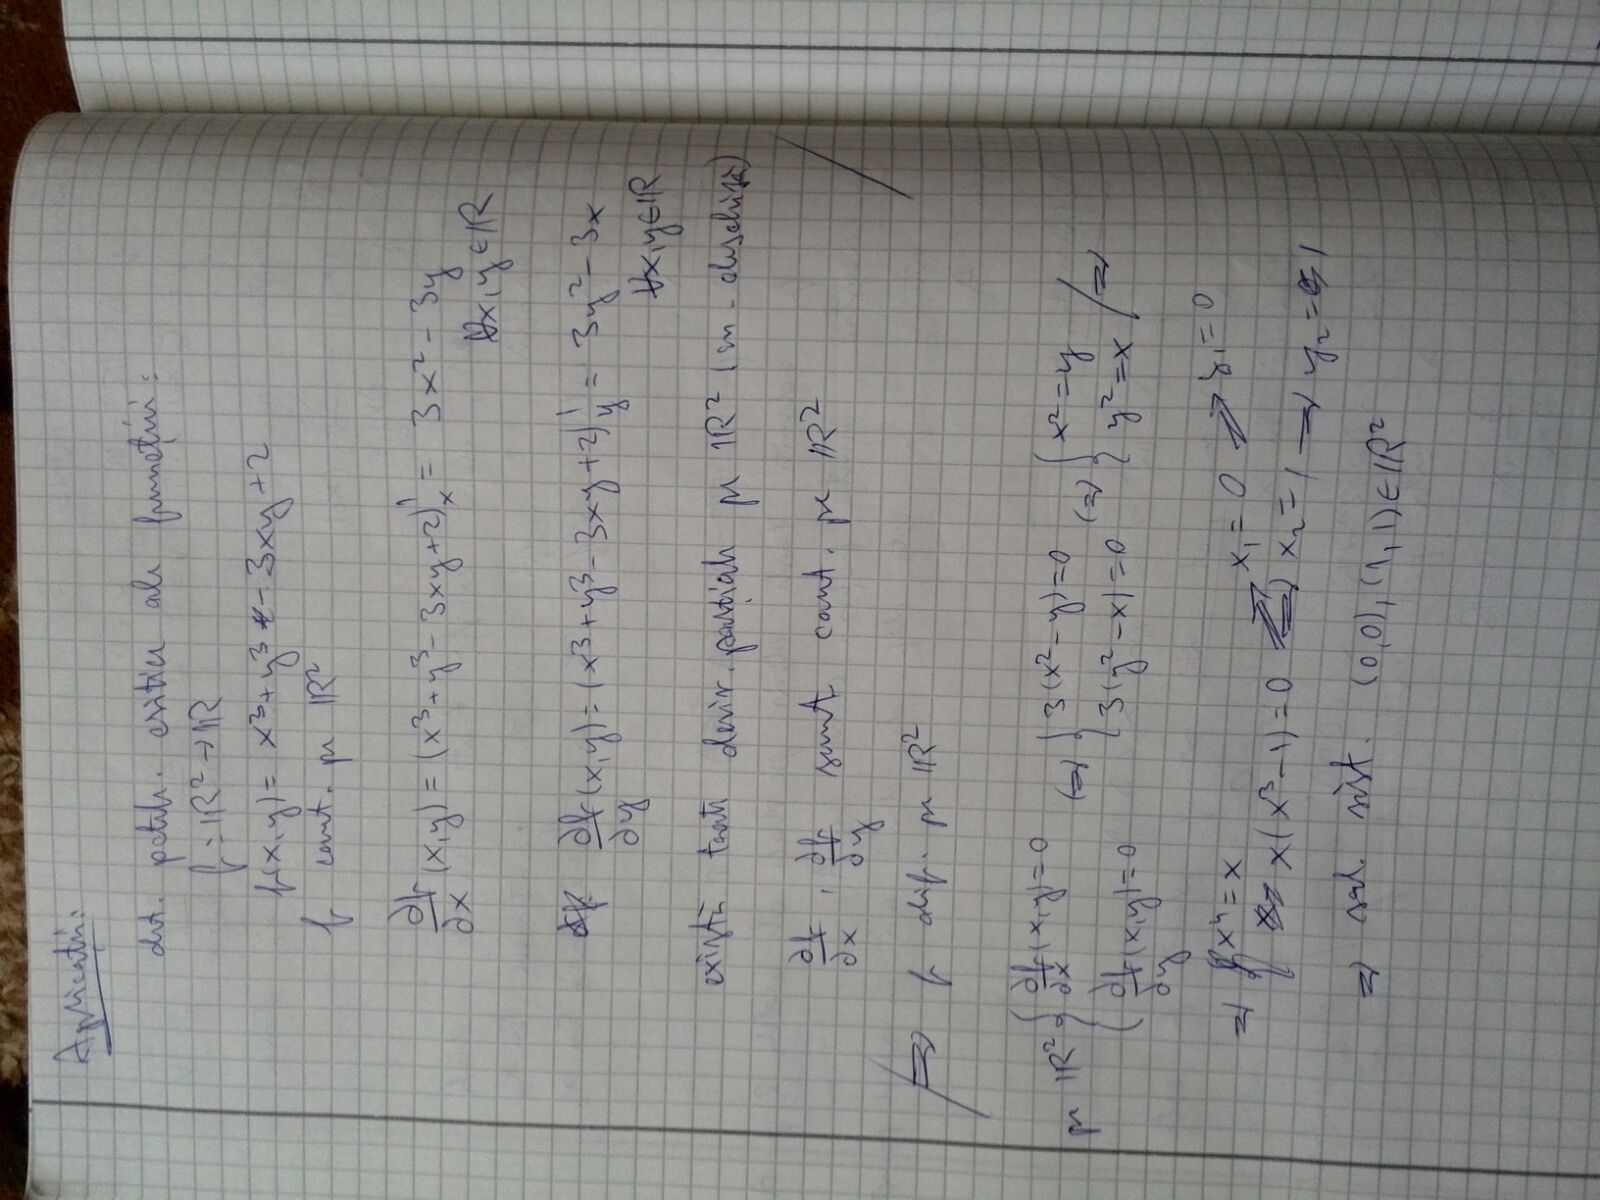 Aplicații:
det. potele. critice ale funcției:
f: ℝ² → ℝ
f(x,y) = x³ + y³ - 3xy + 2
f cont. pe ℝ²
∂f/∂x (x,y) = (x³ + y³ - 3xy + 2)'ₓ = 3x² - 3y
∀x,y ∈ ℝ
∂f/∂y (x,y) = (x³ + y³ - 3xy + 2)'y = 3y² - 3x
∀x,y ∈ ℝ
există toate deriv. parțiale pe ℝ² (m. deschisă)
∂f/∂x, ∂f/∂y sunt cont. pe ℝ²
⇒ f dif. pe ℝ²
pe ℝ² { ∂f/∂x (x,y) = 0 (⇒) { 3(x² - y) = 0 (⇒) { x² = y
∂f/∂y (x,y) = 0 3(y² - x) = 0 y² = x / ⇒
⇒ x⁴ = x x₁ = 0 ⇒ y₁ = 0
x(x³ - 1) = 0 ⇒ x₂ = 1 ⇒ y₂ = 1
⇒ sol. sist. (0,0), (1,1) ∈ ℝ²